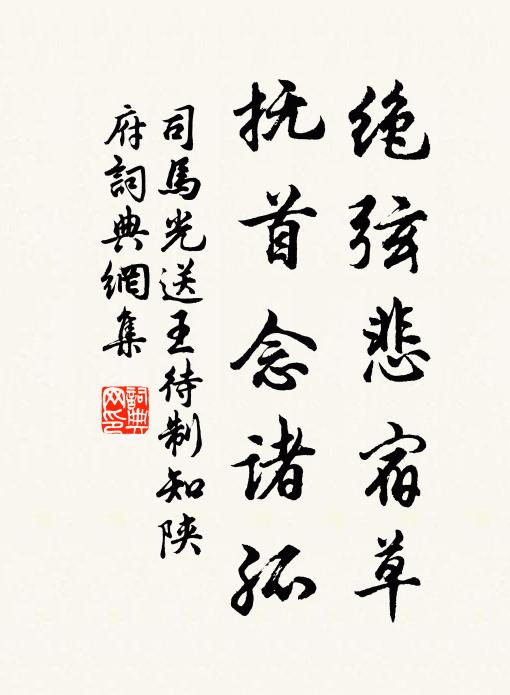 绝弦悲宿草
抚首念诸孤
司馬光送王待制知陝
府詞典網集
詞典
网印